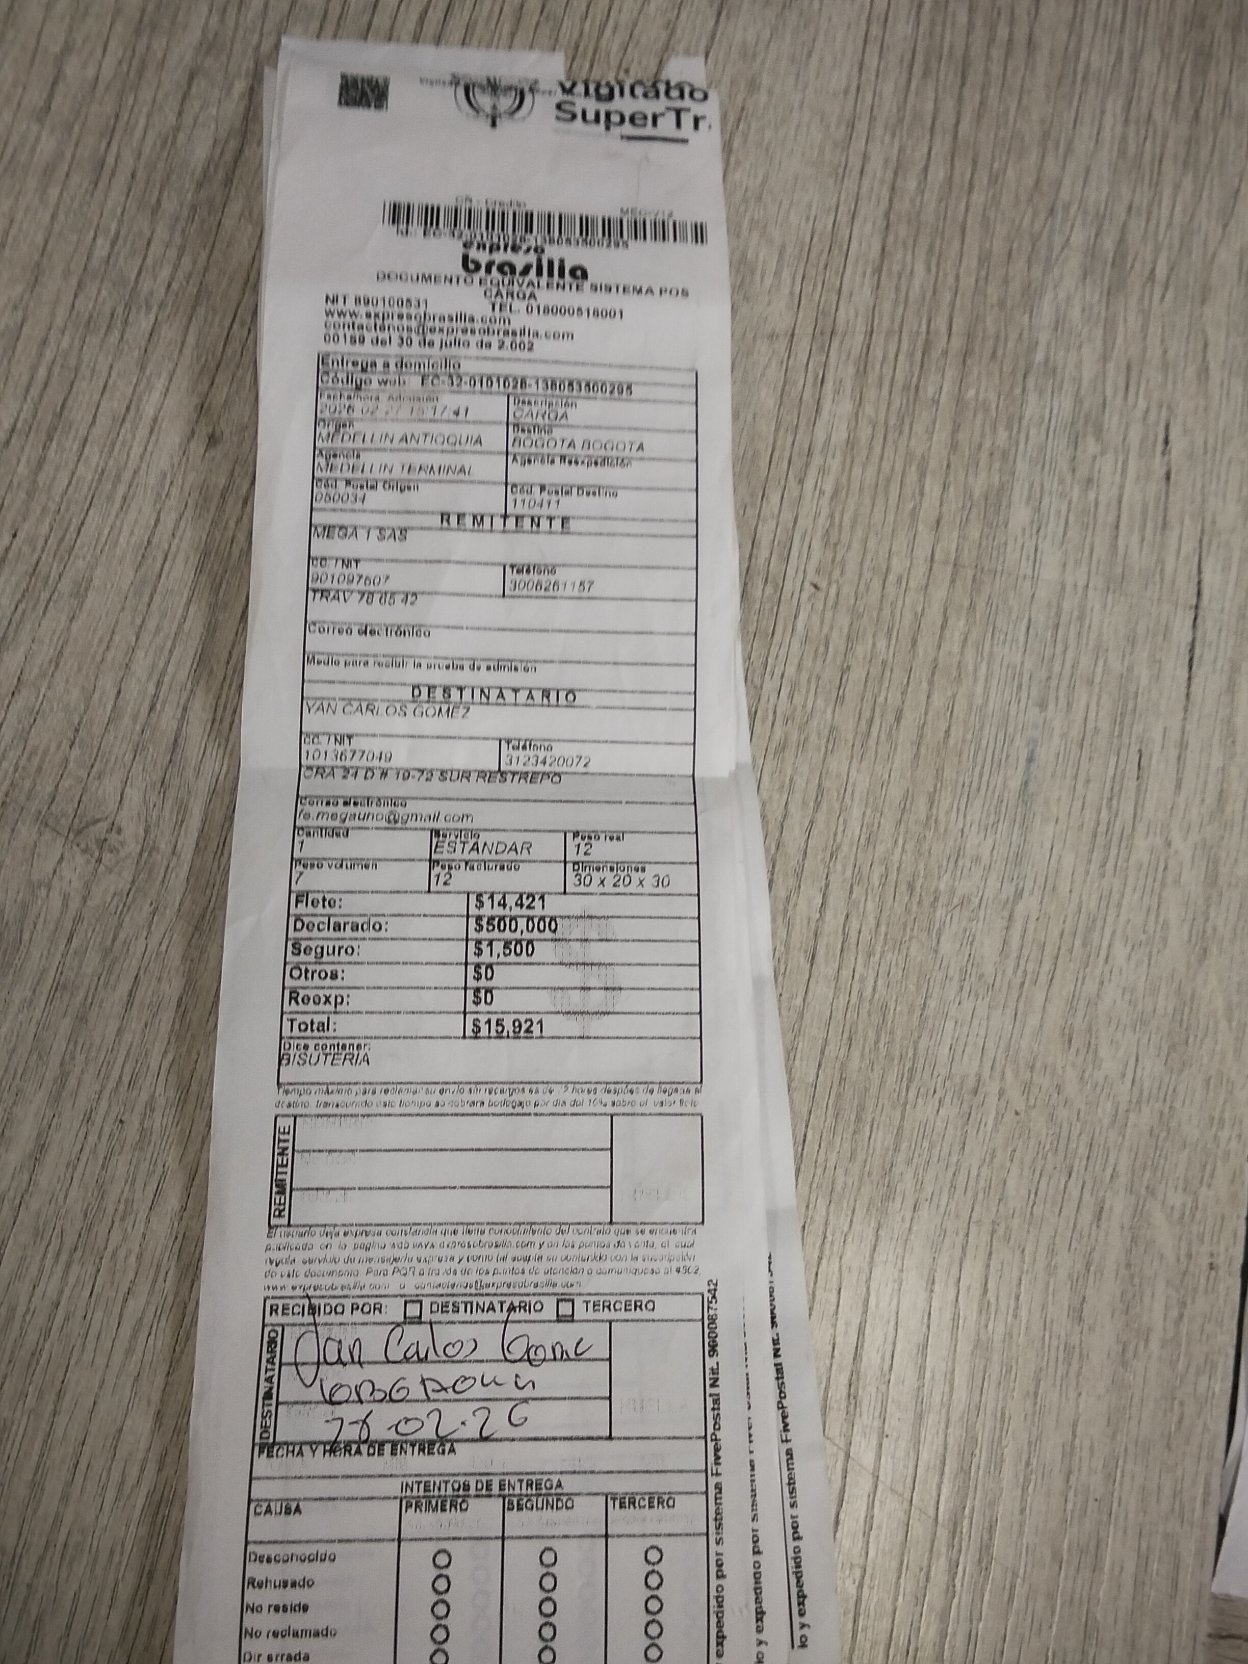 Vigilado
SuperTr
CR - Credito
MEG-212
Id.: EC-32-0101028-138053500295
expreso
brasilia
DOCUMENTO EQUIVALENTE SISTEMA POS
CARGA
NIT 890100531 TEL. 018000518001
www.expresobrasilia.com
contactenos@expresobrasilia.com
00189 del 30 de julio de 2.002
Entrega a domicilio
Código web: EC-32-0101028-138053500295
Fecha/hora Admisión Descripción
2026-02-27 15:17:41 CARGA
Origen Destino
MEDELLIN ANTIOQUIA BOGOTA BOGOTA
Agencia Agencia Reexpedición
MEDELLIN TERMINAL
Cód. Postal Origen Cód. Postal Destino
050034 110411
REMITENTE
MEGA 1 SAS
CC. / NIT Teléfono
901097607 3006261157
TRAV 78 65 42
Correo electrónico
Medio para recibir la prueba de admisión
DESTINATARIO
YAN CARLOS GOMEZ
CC. / NIT Teléfono
1013677049 3123420072
CRA 24 D # 19-72 SUR RESTREPO
Correo electrónico
fe.megauno@gmail.com
Cantidad Servicio Peso real
1 ESTANDAR 12
Peso volumen Peso facturado Dimensiones
7 12 30 x 20 x 30
Flete: $14,421
Declarado: $500,000
Seguro: $1,500
Otros: $0
Reexp: $0
Total: $15,921
Dice contener:
BISUTERIA
Tiempo máximo para reclamar su envío sin recargos es de 72 horas después de llegada al
destino, transcurrido este tiempo se cobrara bodegaje por dia del 10% sobre el valor flete
REMITENTE
El usuario deja expresa constancia que tiene conocimiento del contrato que se encuentra
publicado en la pagina web www.expresobrasilia.com y en los puntos de venta, el cual
regula servicio de mensajeria expresa y como tal acepta su contenido con la suscripción
de este documento. Para PQR a través de los puntos de atención o comuniquese al 4562
www.expresobrasilia.com o contactenos@expresobrasilia.com
RECIBIDO POR: DESTINATARIO TERCERO
DESTINATARIO
Jan Carlos Gome
26-02-26
FECHA Y HORA DE ENTREGA
INTENTOS DE ENTREGA
CAUSA PRIMERO SEGUNDO TERCERO
Desconocido
Rehusado
No reside
No reclamado
Dir errada
expedido por sistema FivePostal Nit. 900087542
lo y expedido por sistema
lo y expedido por sistema FivePostal Nit.